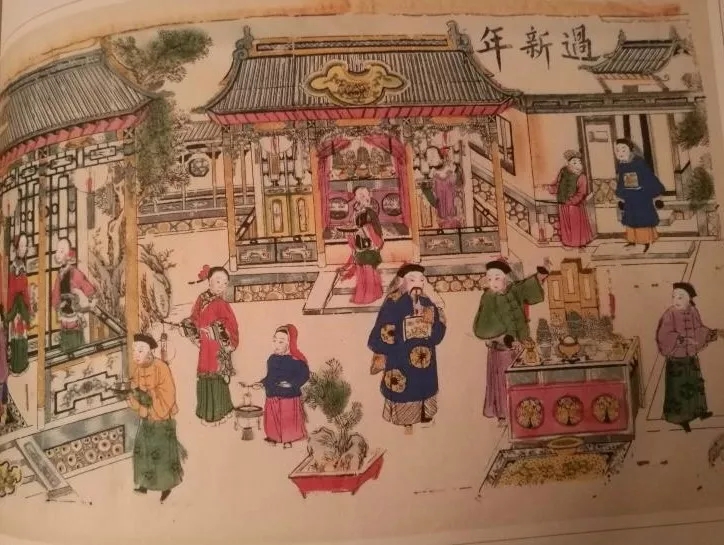 過新年